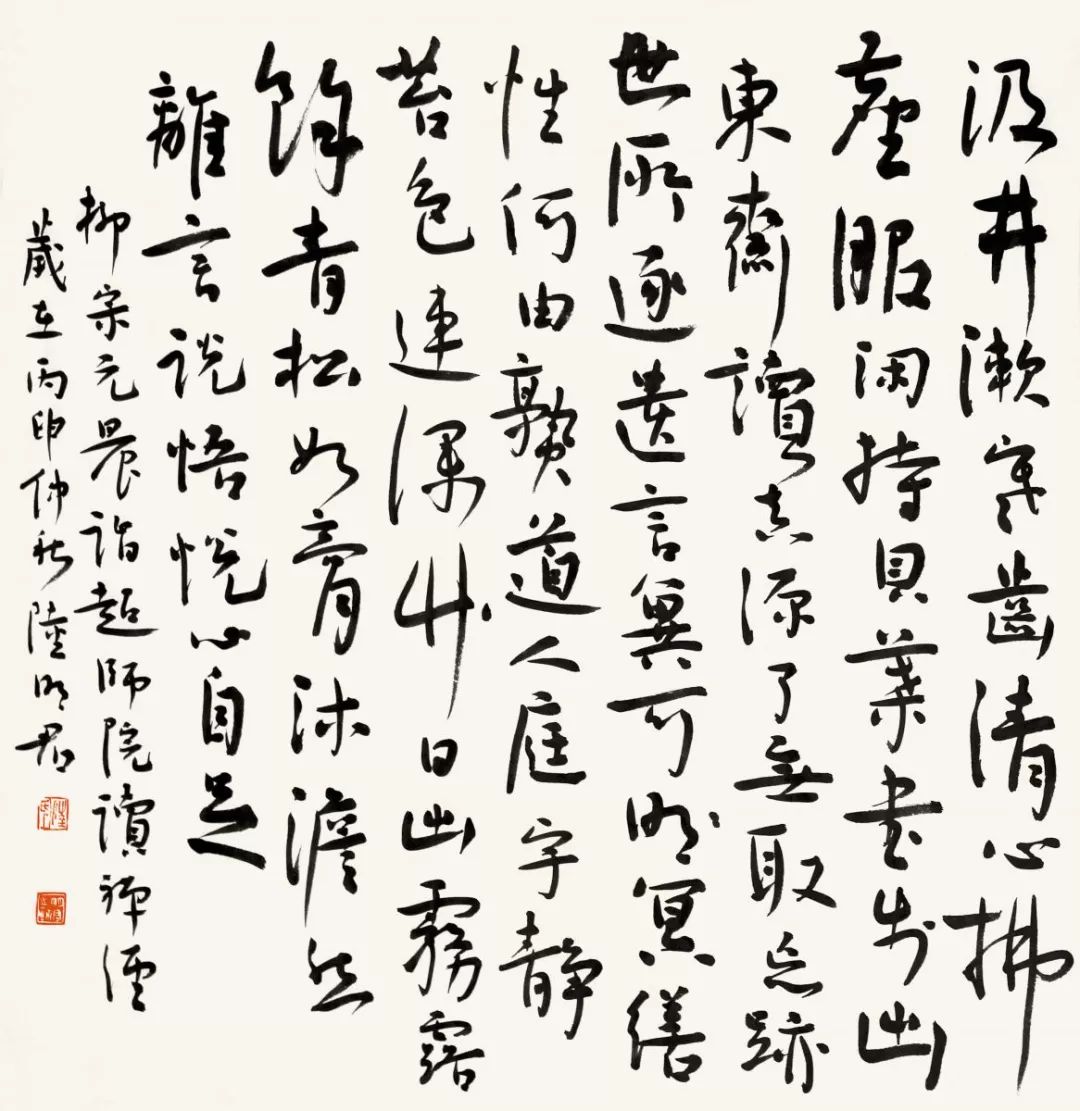 汲井漱寒齒清心拂
塵服闲持貝葉書步出
東齋讀真源了無取忘跡
世所逐遺言冀可明冥繕
性何由熟道人庭宇静
苔色連深竹日出霧露
餘青松如膏沐澹然
離言説悟悦心自足
柳宗元晨詣超師院讀禅經
歲在丙申仲秋陸明君